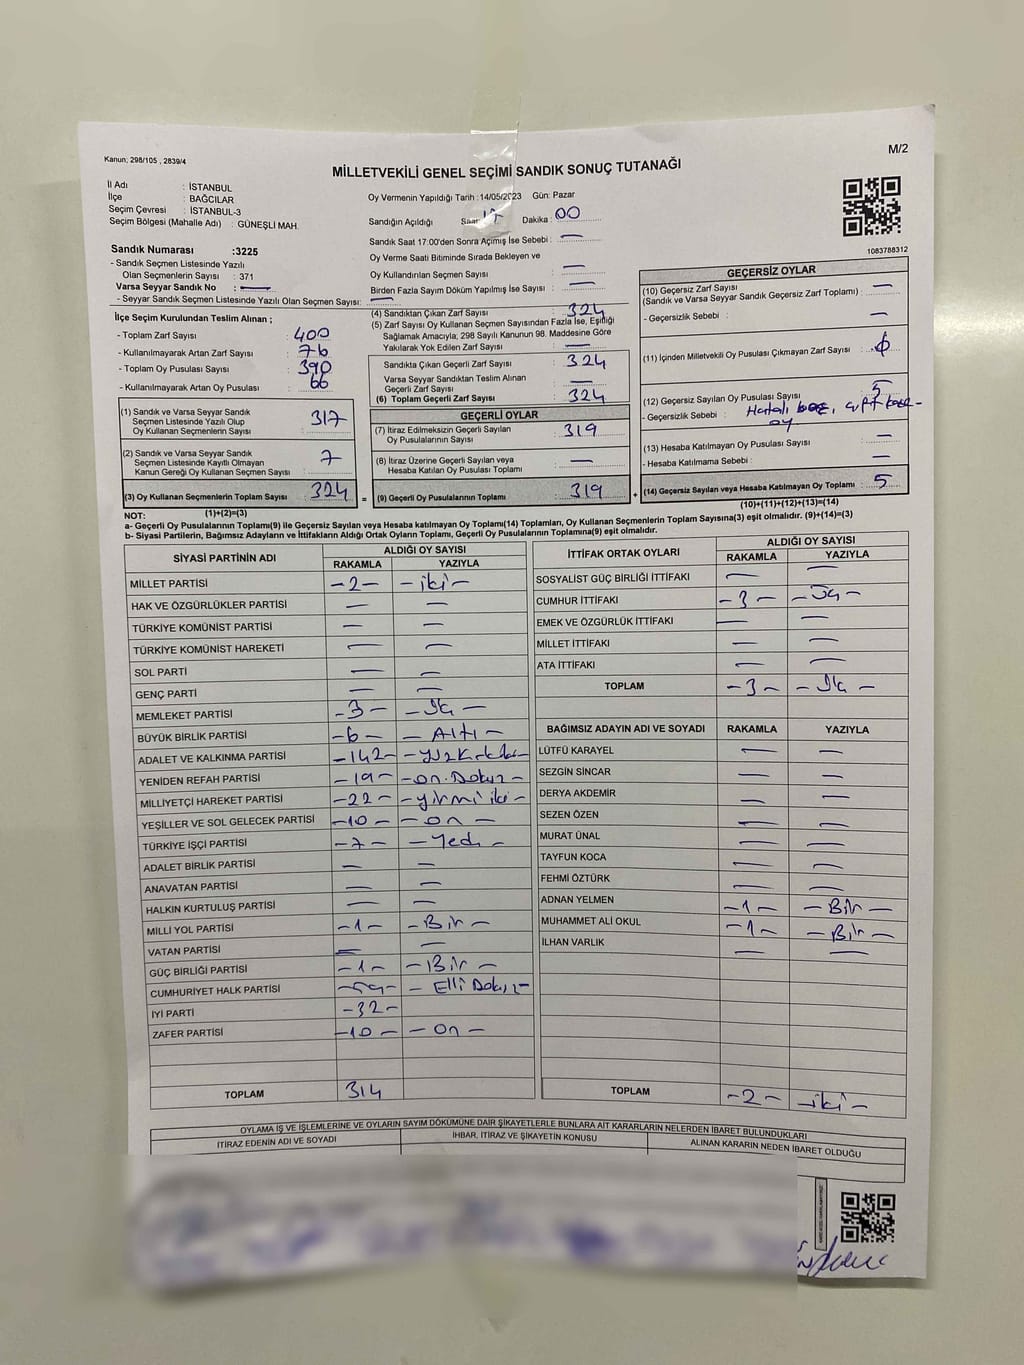 Kanun; 298/105 , 2839/4
M/2
MİLLETVEKİLİ GENEL SEÇİMİ SANDIK SONUÇ TUTANAĞI
İl Adı : İSTANBUL
İlçe : BAĞCILAR
Seçim Çevresi : İSTANBUL-3
Seçim Bölgesi (Mahalle Adı) : GÜNEŞLİ MAH.
Oy Vermenin Yapıldığı Tarih :14/05/2023 Gün: Pazar
Sandığın Açıldığı Saat 17 Dakika : 00
Sandık Saat 17:00'den Sonra Açılmış İse Sebebi : —
Oy Verme Saati Bitiminde Sırada Bekleyen ve
Oy Kullandırılan Seçmen Sayısı : —
Birden Fazla Sayım Döküm Yapılmış İse Sayısı : —
1083788312
Sandık Numarası :3225
- Sandık Seçmen Listesinde Yazılı
Olan Seçmenlerin Sayısı : 371
Varsa Seyyar Sandık No : —
- Seyyar Sandık Seçmen Listesinde Yazılı Olan Seçmen Sayısı: —
İlçe Seçim Kurulundan Teslim Alınan ;
- Toplam Zarf Sayısı : 400
- Kullanılmayarak Artan Zarf Sayısı : 76
- Toplam Oy Pusulası Sayısı : 390
- Kullanılmayarak Artan Oy Pusulası : 66
(1) Sandık ve Varsa Seyyar Sandık
Seçmen Listesinde Yazılı Olup
Oy Kullanan Seçmenlerin Sayısı : 317
(2) Sandık ve Varsa Seyyar Sandık
Seçmen Listesinde Kayıtlı Olmayan
Kanun Gereği Oy Kullanan Seçmen Sayısı : 7
(3) Oy Kullanan Seçmenlerin Toplam Sayısı : 324
(1)+(2)=(3)
(4) Sandıktan Çıkan Zarf Sayısı : 324
(5) Zarf Sayısı Oy Kullanan Seçmen Sayısından Fazla İse, Eşitliği
Sağlamak Amacıyla; 298 Sayılı Kanunun 98. Maddesine Göre
Yakılarak Yok Edilen Zarf Sayısı : —
Sandıkta Çıkan Geçerli Zarf Sayısı : 324
Varsa Seyyar Sandıktan Teslim Alınan
Geçerli Zarf Sayısı : —
(6) Toplam Geçerli Zarf Sayısı : 324
GEÇERLİ OYLAR
(7) İtiraz Edilmeksizin Geçerli Sayılan
Oy Pusulalarının Sayısı : 319
(8) İtiraz Üzerine Geçerli Sayılan veya
Hesaba Katılan Oy Pusulası Toplamı : —
= (9) Geçerli Oy Pusulalarının Toplamı : 319 +
GEÇERSİZ OYLAR
(10) Geçersiz Zarf Sayısı
(Sandık ve Varsa Seyyar Sandık Geçersiz Zarf Toplamı) : —
- Geçersizlik Sebebi : —
(11) İçinden Milletvekili Oy Pusulası Çıkmayan Zarf Sayısı :
(12) Geçersiz Sayılan Oy Pusulası Sayısı : 5
- Geçersizlik Sebebi : Hatalı
oy
(13) Hesaba Katılmayan Oy Pusulası Sayısı : —
- Hesaba Katılmama Sebebi : —
(14) Geçersiz Sayılan veya Hesaba Katılmayan Oy Toplamı : 5
(10)+(11)+(12)+(13)=(14)
NOT:
a- Geçerli Oy Pusulalarının Toplamı(9) ile Geçersiz Sayılan veya Hesaba katılmayan Oy Toplamı(14) Toplamları, Oy Kullanan Seçmenlerin Toplam Sayısına(3) eşit olmalıdır. (9)+(14)=(3)
b- Siyasi Partilerin, Bağımsız Adayların ve İttifakların Aldığı Ortak Oyların Toplamı, Geçerli Oy Pusulalarının Toplamına(9) eşit olmalıdır.
SİYASİ PARTİNİN ADI ALDIĞI OY SAYISI
RAKAMLA YAZIYLA
MİLLET PARTİSİ -2- -iki-
HAK VE ÖZGÜRLÜKLER PARTİSİ — —
TÜRKİYE KOMÜNİST PARTİSİ — —
TÜRKİYE KOMÜNİST HAREKETİ — —
SOL PARTİ — —
GENÇ PARTİ — —
MEMLEKET PARTİSİ -3- -Üç-
BÜYÜK BİRLİK PARTİSİ -6- -Altı-
ADALET VE KALKINMA PARTİSİ -142-
YENİDEN REFAH PARTİSİ -19- -on.Dokuz-
MİLLİYETÇİ HAREKET PARTİSİ -22- -yirmi iki-
YEŞİLLER VE SOL GELECEK PARTİSİ -10- -on-
TÜRKİYE İŞÇİ PARTİSİ -7- -Yedi-
ADALET BİRLİK PARTİSİ — —
ANAVATAN PARTİSİ — —
HALKIN KURTULUŞ PARTİSİ — —
MİLLİ YOL PARTİSİ -1- -Bir-
VATAN PARTİSİ — —
GÜÇ BİRLİĞİ PARTİSİ -1- -Bir-
CUMHURİYET HALK PARTİSİ -59- -Elli Dokuz-
İYİ PARTİ -32-
ZAFER PARTİSİ -10- -on-
TOPLAM 314
İTTİFAK ORTAK OYLARI ALDIĞI OY SAYISI
RAKAMLA YAZIYLA
SOSYALİST GÜÇ BİRLİĞİ İTTİFAKI — —
CUMHUR İTTİFAKI -3- -Üç-
EMEK VE ÖZGÜRLÜK İTTİFAKI — —
MİLLET İTTİFAKI — —
ATA İTTİFAKI — —
TOPLAM -3- -Üç-
BAĞIMSIZ ADAYIN ADI VE SOYADI RAKAMLA YAZIYLA
LÜTFÜ KARAYEL — —
SEZGİN SİNCAR — —
DERYA AKDEMİR — —
SEZEN ÖZEN — —
MURAT ÜNAL — —
TAYFUN KOCA — —
FEHMİ ÖZTÜRK — —
ADNAN YELMEN -1- -Bir-
MUHAMMET ALİ OKUL -1- -Bir-
İLHAN VARLIK — —
TOPLAM -2- -iki-
OYLAMA İŞ VE İŞLEMLERİNE VE OYLARIN SAYIM DÖKÜMÜNE DAİR ŞİKAYETLERLE BUNLARA AİT KARARLARIN NELERDEN İBARET BULUNDUKLARI
İTİRAZ EDENİN ADI VE SOYADI İHBAR, İTİRAZ VE ŞİKAYETİN KONUSU ALINAN KARARIN NEDEN İBARET OLDUĞU